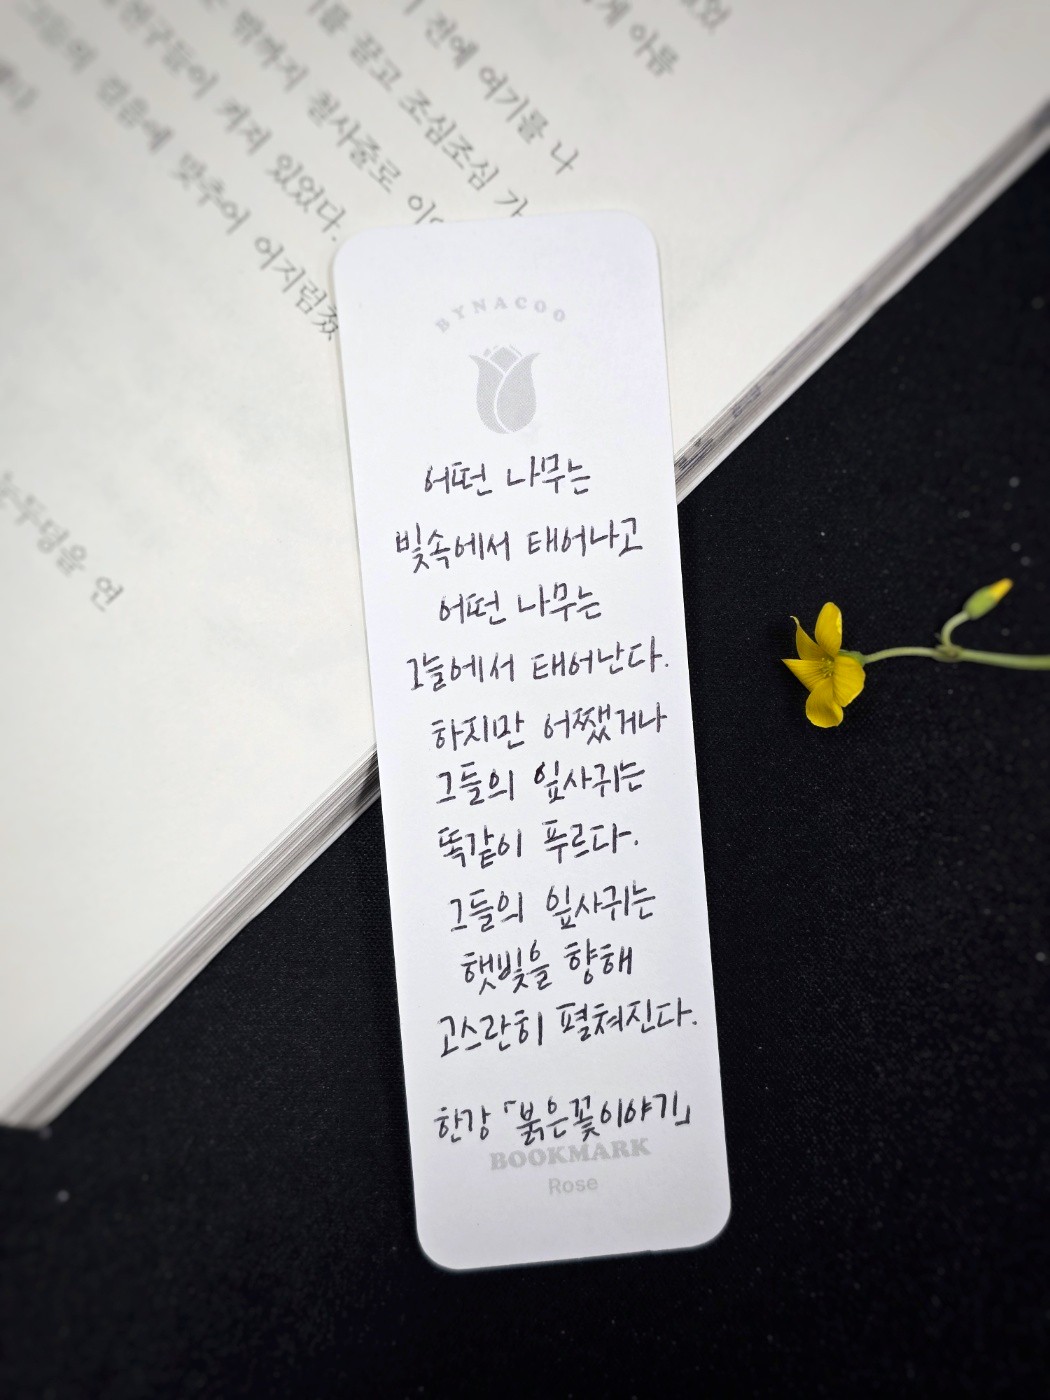 전에 여기를 나
끌고 조심조심
밖까지 칠사줄로
켜져 있었다.
걸음에 맞추어 어지럽
눈두덩을 연
BYNACOO
어떤 나무는
빛속에서 태어나고
어떤 나무는
그늘에서 태어난다.
하지만 어쨌거나
그들의 잎사귀는
똑같이 푸르다.
그들의 잎사귀는
햇빛을 향해
고스란히 펼쳐진다.
한강 「붉은꽃이야기」
BOOKMARK
Rose